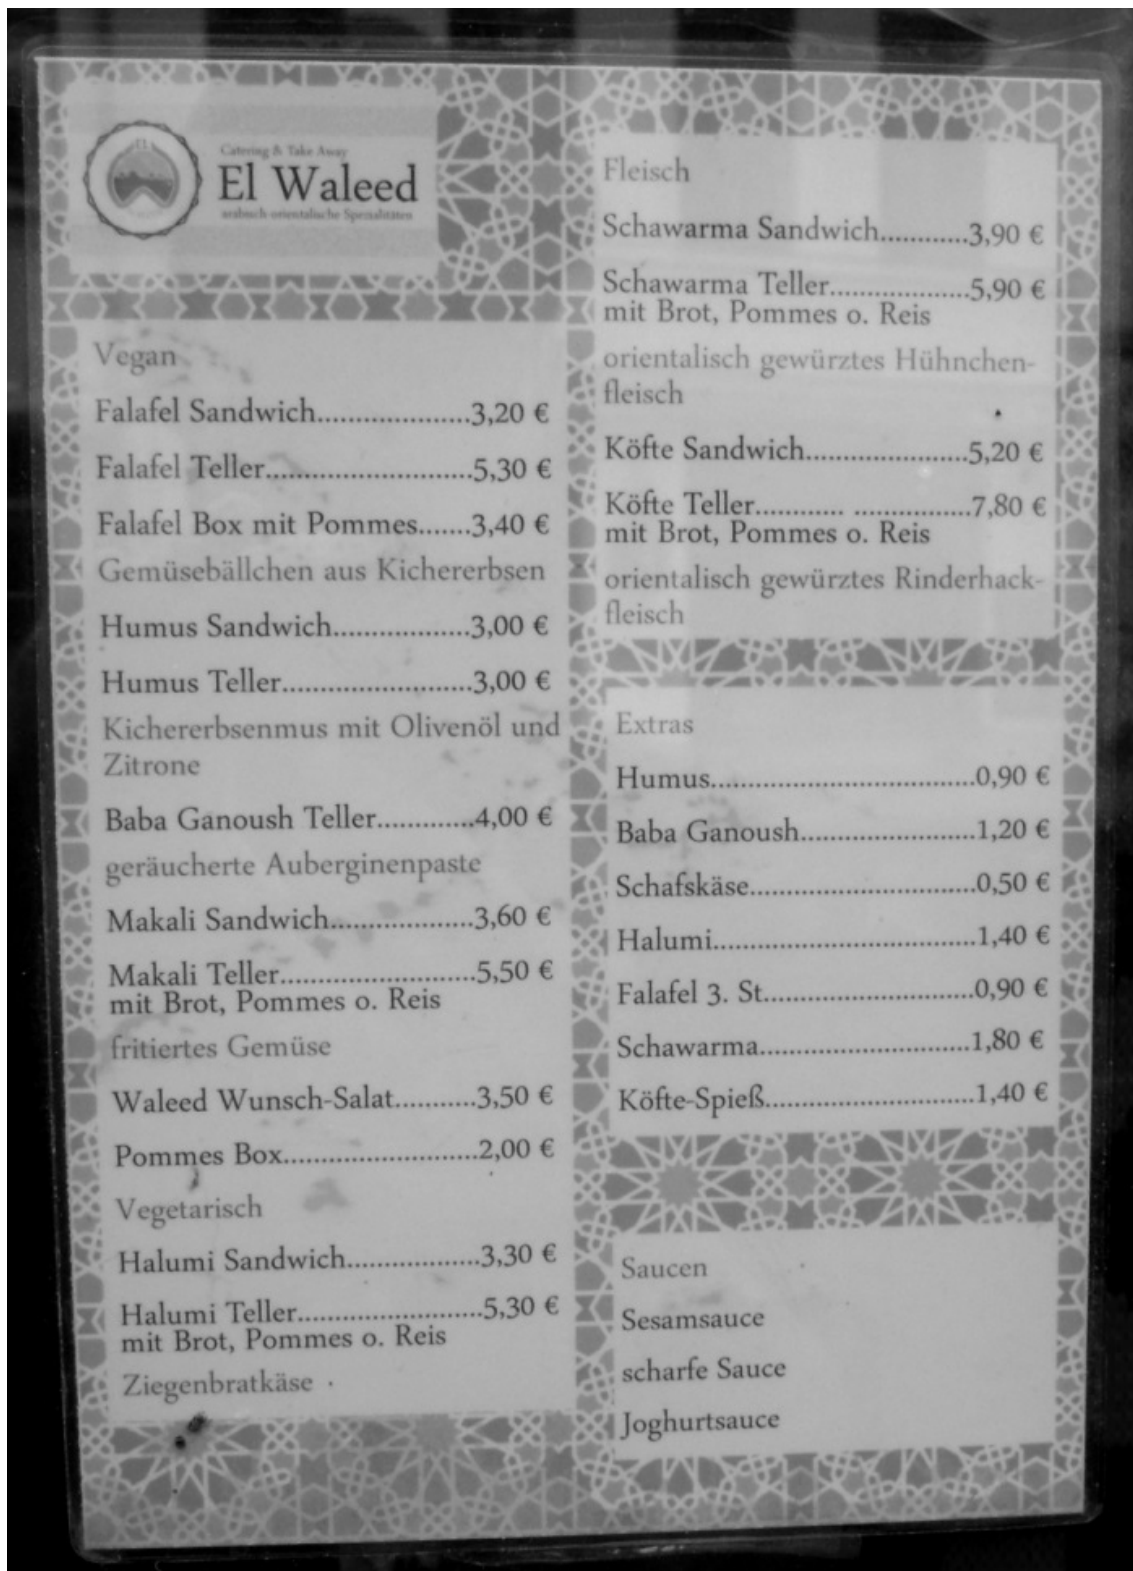 Catering & Take Away
El Waleed
arabisch orientalische Spezialitäten
Vegan
Falafel Sandwich....................3,20 €
Falafel Teller...........................5,30 €
Falafel Box mit Pommes.......3,40 €
Gemüsebällchen aus Kichererbsen
Humus Sandwich..................3,00 €
Humus Teller.........................3,00 €
Kichererbsenmus mit Olivenöl und
Zitrone
Baba Ganoush Teller.............4,00 €
geräucherte Auberginenpaste
Makali Sandwich...................3,60 €
Makali Teller..........................5,50 €
mit Brot, Pommes o. Reis
fritiertes Gemüse
Waleed Wunsch-Salat...........3,50 €
Pommes Box.........................2,00 €
Vegetarisch
Halumi Sandwich.................3,30 €
Halumi Teller........................5,30 €
mit Brot, Pommes o. Reis
Ziegenbratkäse
Fleisch
Schawarma Sandwich............3,90 €
Schawarma Teller..................5,90 €
mit Brot, Pommes o. Reis
orientalisch gewürztes Hühnchen-
fleisch
Köfte Sandwich.....................5,20 €
Köfte Teller............ ...............7,80 €
mit Brot, Pommes o. Reis
orientalisch gewürztes Rinderhack-
fleisch
Extras
Humus...................................0,90 €
Baba Ganoush.......................1,20 €
Schafskäse..............................0,50 €
Halumi...................................1,40 €
Falafel 3. St............................0,90 €
Schawarma............................1,80 €
Köfte-Spieß............................1,40 €
Saucen
Sesamsauce
scharfe Sauce
Joghurtsauce